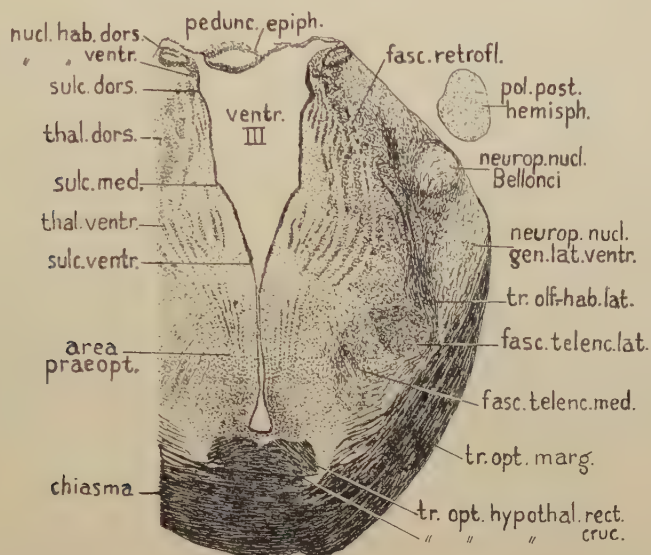 pedunc. epiph.
nucl. hab. dors.
" " ventr.
sulc. dors.
thal. dors.
sulc. med.
thal. ventr.
sulc. ventr.
area
praeopt.
chiasma
ventr.
III
fasc. retrofl.
pol. post.
hemisph.
neurop. nucl.
Bellonci
neurop. nucl.
gen. lat. ventr.
tr. olf-hab. lat.
fasc. telenc. lat.
fasc. telenc. med.
tr. opt. marg.
tr. opt. hypothal. rect.
" " " cruc.